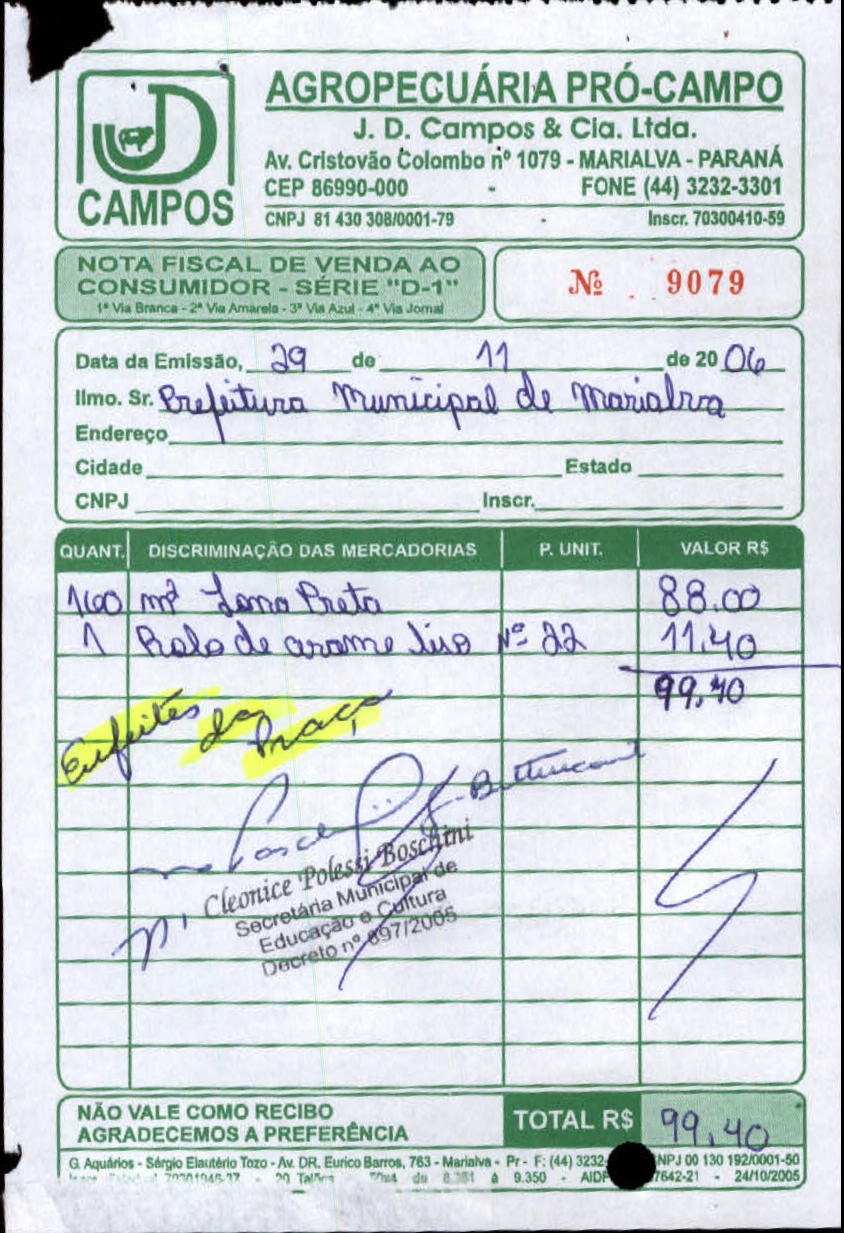 AGROPECUÁRIA PRÓ-CAMPO
J. D. Campos & Cia. Ltda.
Av. Cristovão Colombo nº 1079 - MARIALVA - PARANÁ
CEP 86990-000 - FONE (44) 3232-3301
CNPJ 81 430 308/0001-79 - Inscr. 70300410-59
JD
CAMPOS
NOTA FISCAL DE VENDA AO
CONSUMIDOR - SÉRIE "D-1"
1ª Via Branca - 2ª Via Amarela - 3ª Via Azul - 4ª Via Jornal
Nº 9079
Data da Emissão, 29 de 11 de 2006
Ilmo. Sr. Prefeitura Municipal de Marialva
Endereço
Cidade Estado
CNPJ Inscr.
QUANT. DISCRIMINAÇÃO DAS MERCADORIAS P. UNIT. VALOR R$
160 m² Lona Preta 88.00
1 Rolo de arame liso Nº 22 11.40
99.40
Enfeites da Praça
Bittencourt
Cleonice Polessi Boschini
Secretária Municipal de
Educação e Cultura
Decreto nº 697/2005
NÃO VALE COMO RECIBO
AGRADECEMOS A PREFERÊNCIA
TOTAL R$ 99.40
G. Aquários - Sérgio Elautério Tozo - Av. DR. Eurico Barros, 763 - Marialva - Pr - F: (44) 3232 NPJ 00 130 192/0001-50
20 Talões 50x4 de á 9.350 - AIDF 7642-21 - 24/10/2005